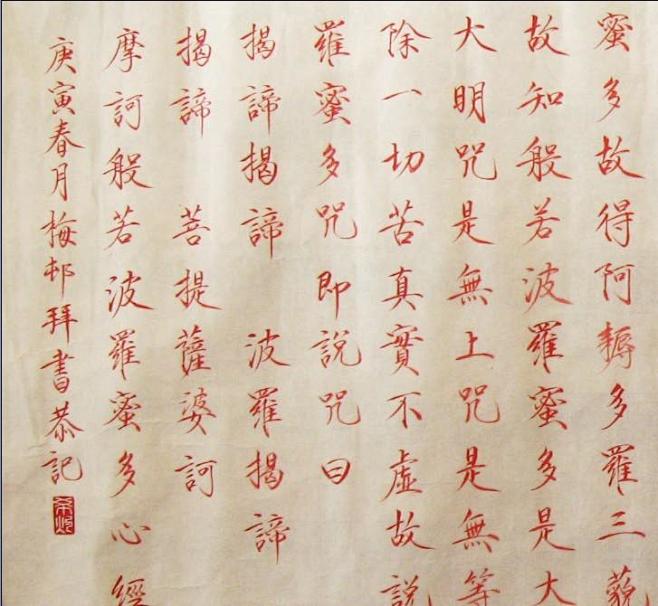 蜜多故得阿耨多羅三藐
故知般若波羅蜜多是大
大明咒是無上咒是無等
除一切苦真實不虛故說
羅蜜多咒即說咒曰
揭諦揭諦 波羅揭諦
揭諦 菩提薩婆訶
摩訶般若波羅蜜多心經
庚寅春月梅邨拜書恭記